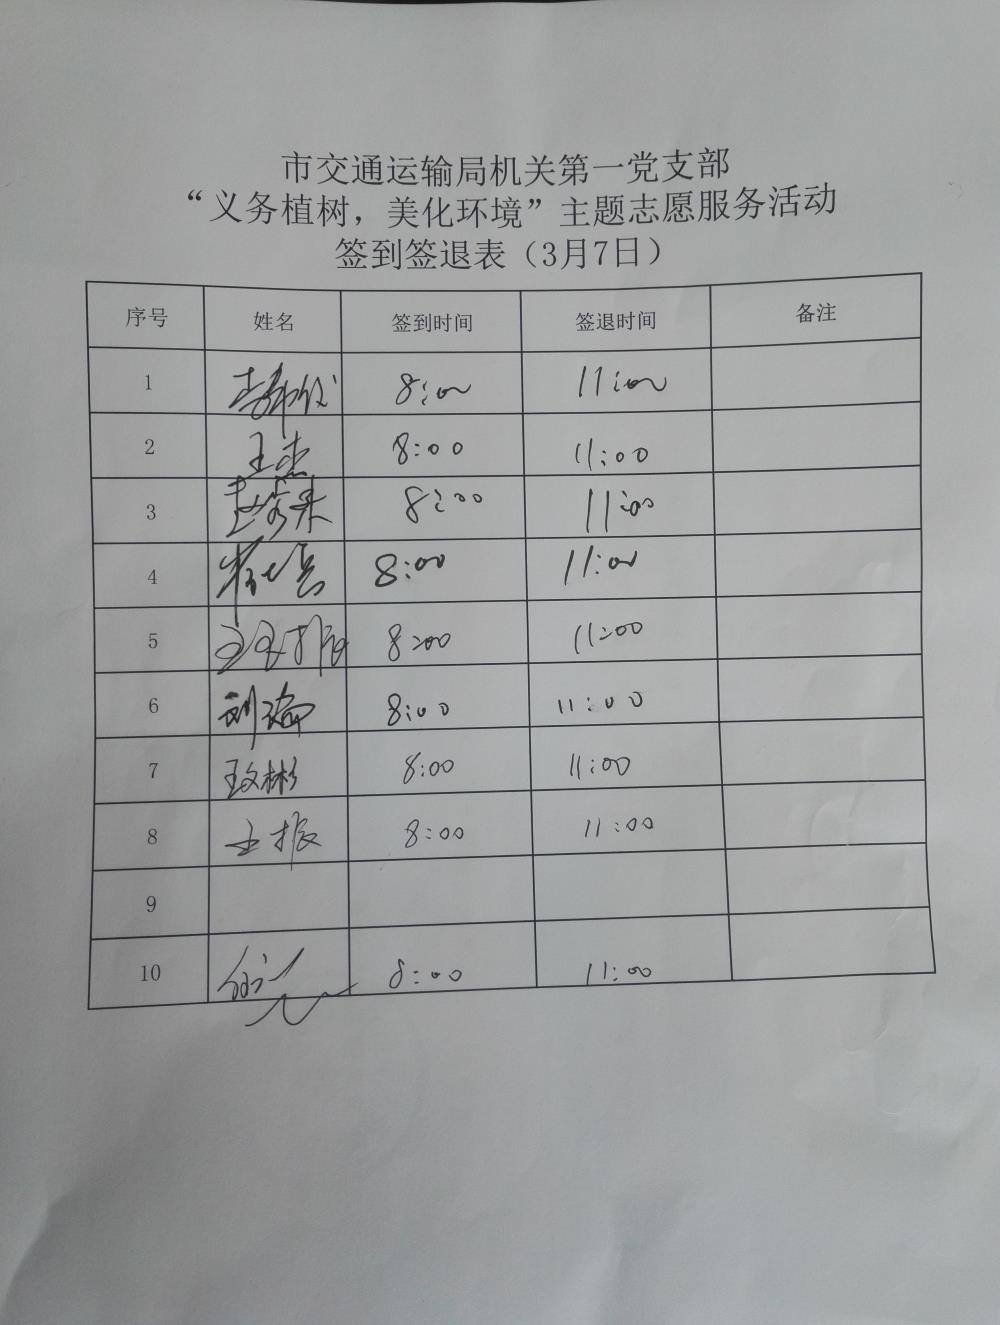 市交通运输局机关第一党支部
“义务植树，美化环境”主题志愿服务活动
签到签退表（3月7日）
序号 姓名 签到时间 签退时间 备注
1 8:00 11:00
2 王杰 8:00 11:00
3 8:00 11:00
4 8:00 11:00
5 8:00 11:00
6 刘瑞 8:00 11:00
7 王文彬 8:00 11:00
8 王振 8:00 11:00
9
10 8:00 11:00